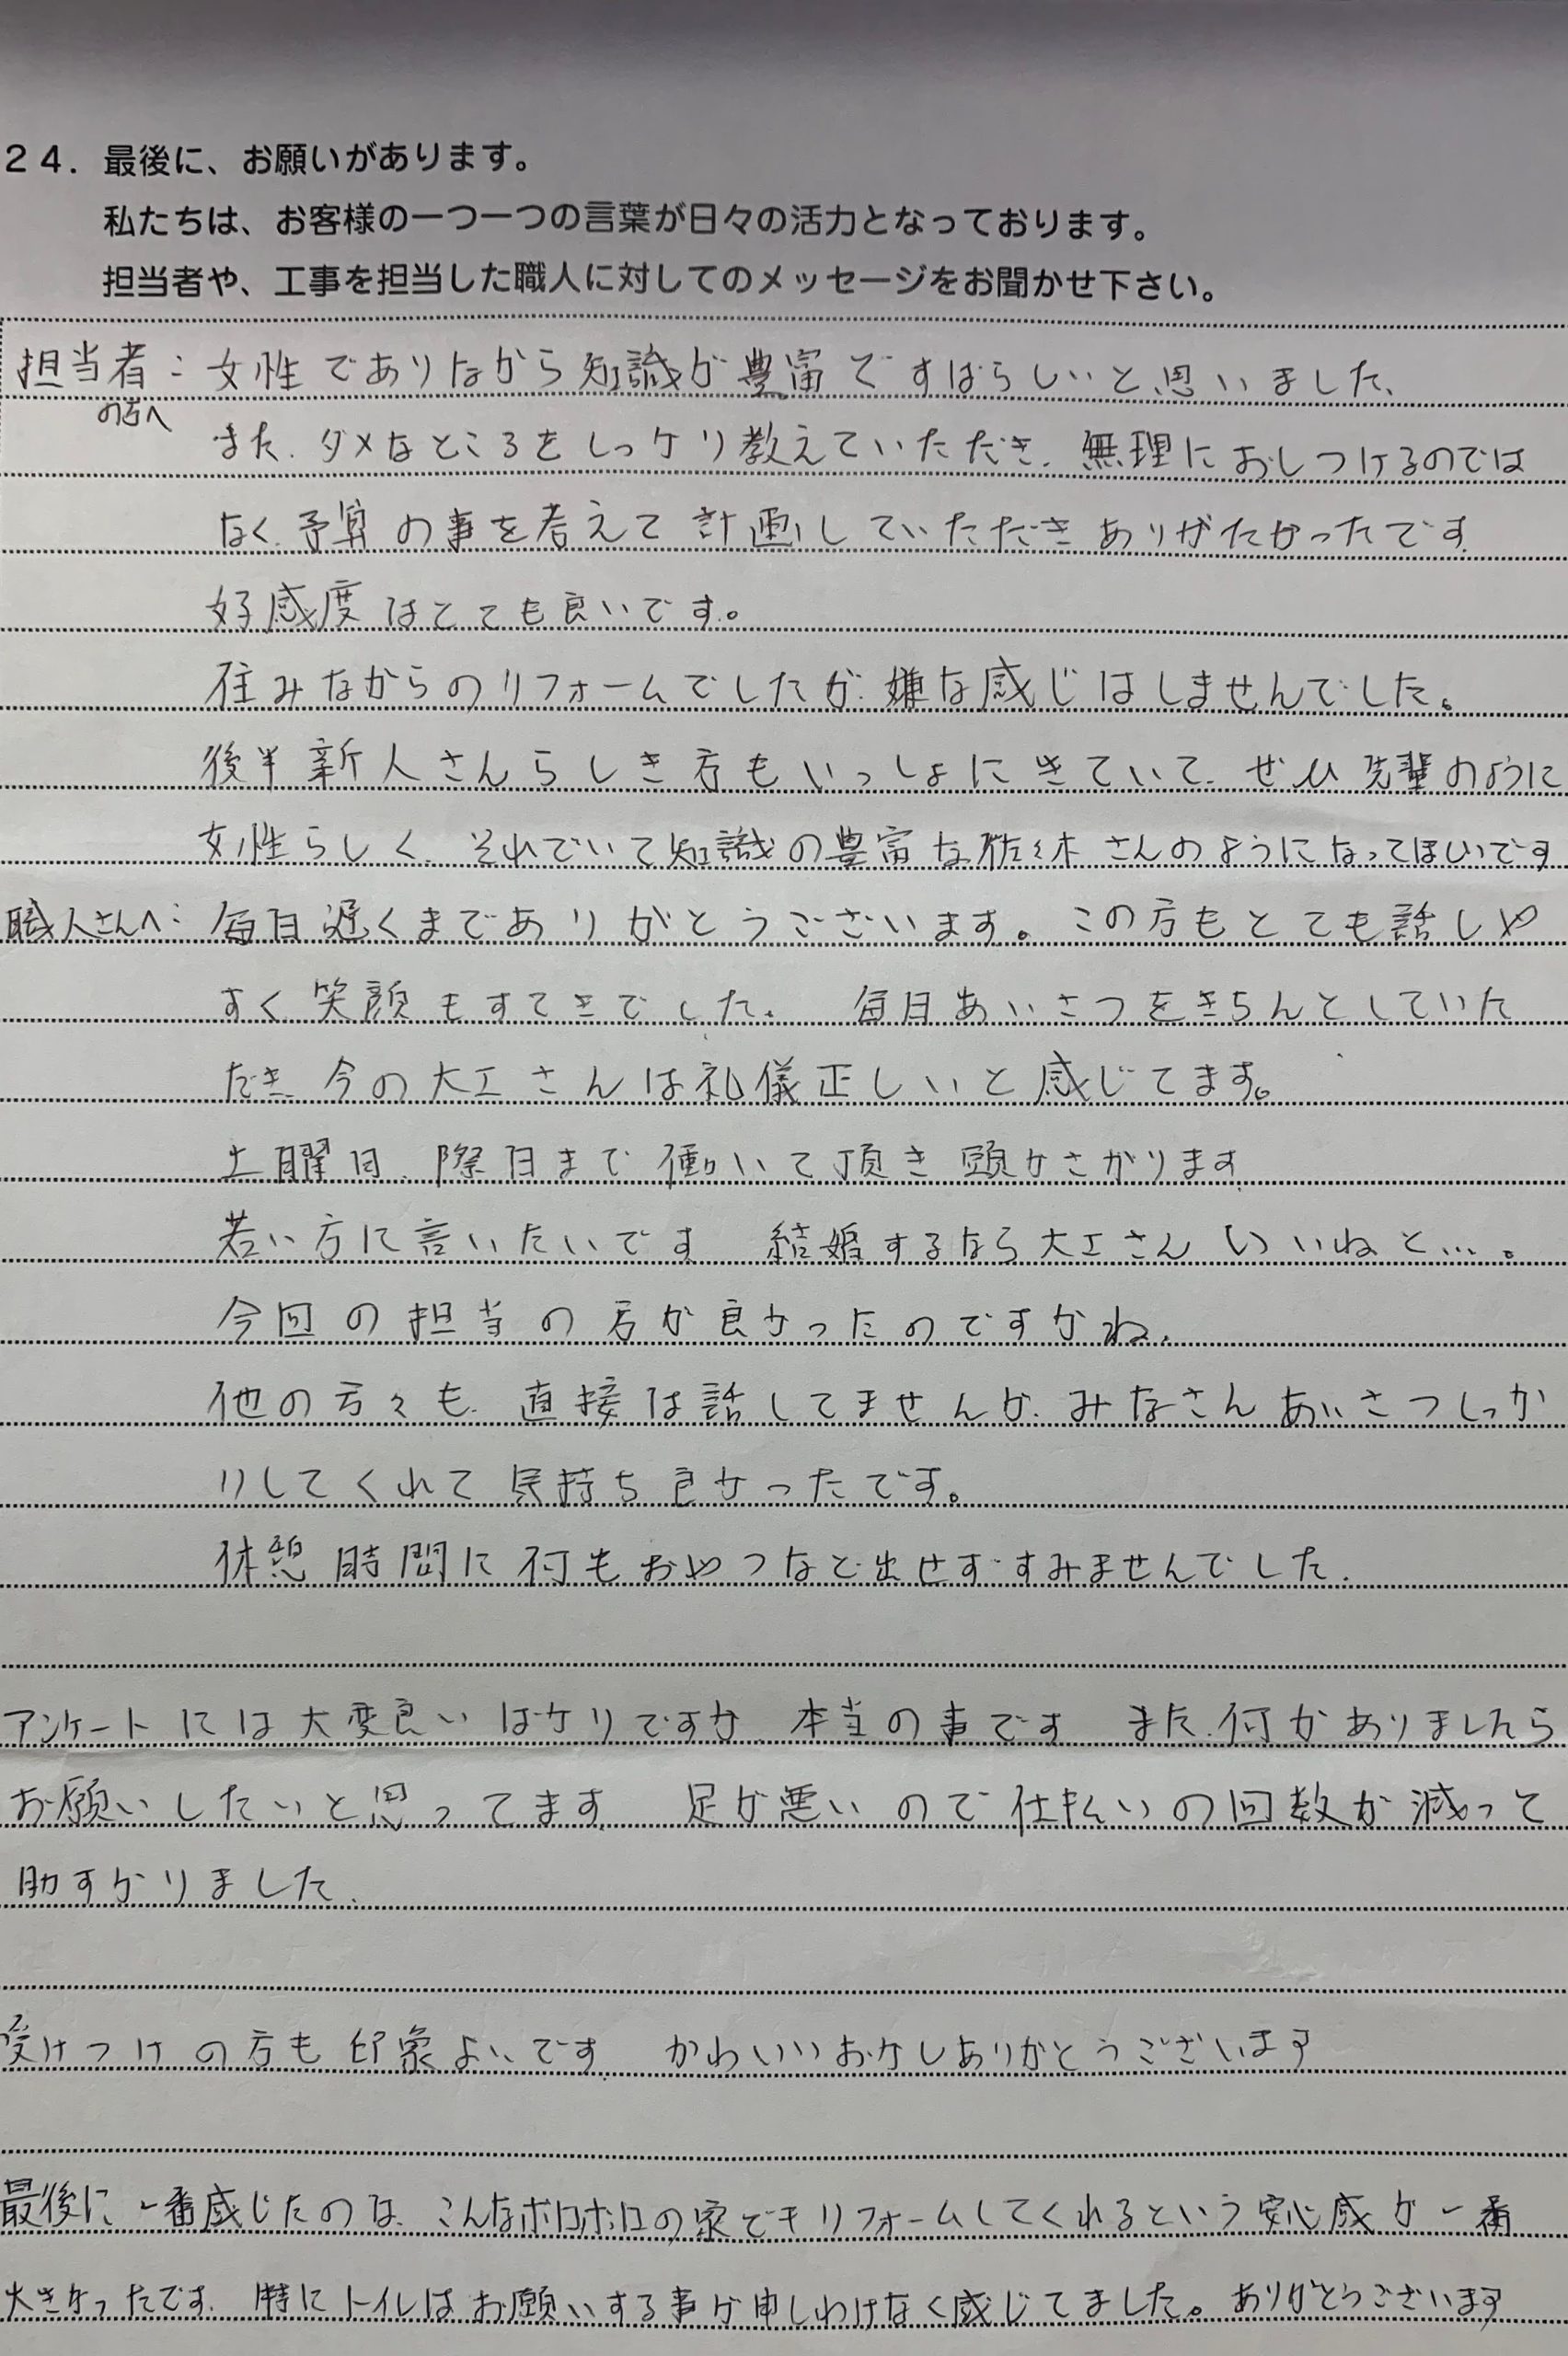 ２４．最後に、お願いがあります。
私たちは、お客様の一つ一つの言葉が日々の活力となっております。
担当者や、工事を担当した職人に対してのメッセージをお聞かせ下さい。
担当者の方へ：女性でありながら知識が豊富ですばらしいと思いました、
また、ダメなところをしっかり教えていただき、無理におしつけるのでは
なく、予算の事を考えて計画していただきありがたかったです。
好感度はとても良いです。
住みながらのリフォームでしたが、嫌な感じはしませんでした。
後半新人さんらしき方もいっしょにきていて、ぜひ先輩のように
女性らしく、それでいて知識の豊富な佐々木さんのようになってほしいです
職人さんへ：毎日遅くまでありがとうございます。この方もとても話しや
すく笑顔もすてきでした。毎日あいさつをきちんとしていた
だき、今の大工さんは礼儀正しいと感じてます。
土曜日、際日まで働いて頂き頭がさがります。
若い方に言いたいです 結婚するなら大工さんいいねと…。
今回の担当の方が良かったのですかね、
他の方々も、直接は話してませんが、みなさんあいさつしっか
りしてくれて気持ち良かったです。
休憩時間に何もおやつなど出せずすみませんでした.
アンケートには大変良いばかりですが、本当の事です また、何かありましたら
お願いしたいと思ってます。足が悪いので仕払いの回数が減って
助すかりました.
受けつけの方も印象よいです。かわいいおかしありがとうございます
最後に一番感じたのは、こんなボロボロの家でもリフォームしてくれるという安心感が一番
大きかったです。特にトイレはお願いする事が申しわけなく感じてました。ありがとうございます